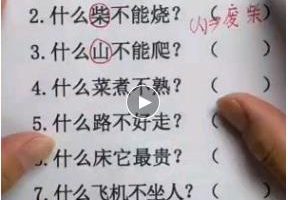 2.什么柴不能烧？（废柴
3.什么山不能爬？（　）
4.什么菜煮不熟？（　）
5.什么路不好走？（
6.什么床它最贵？（
7.什么飞机不坐人？（